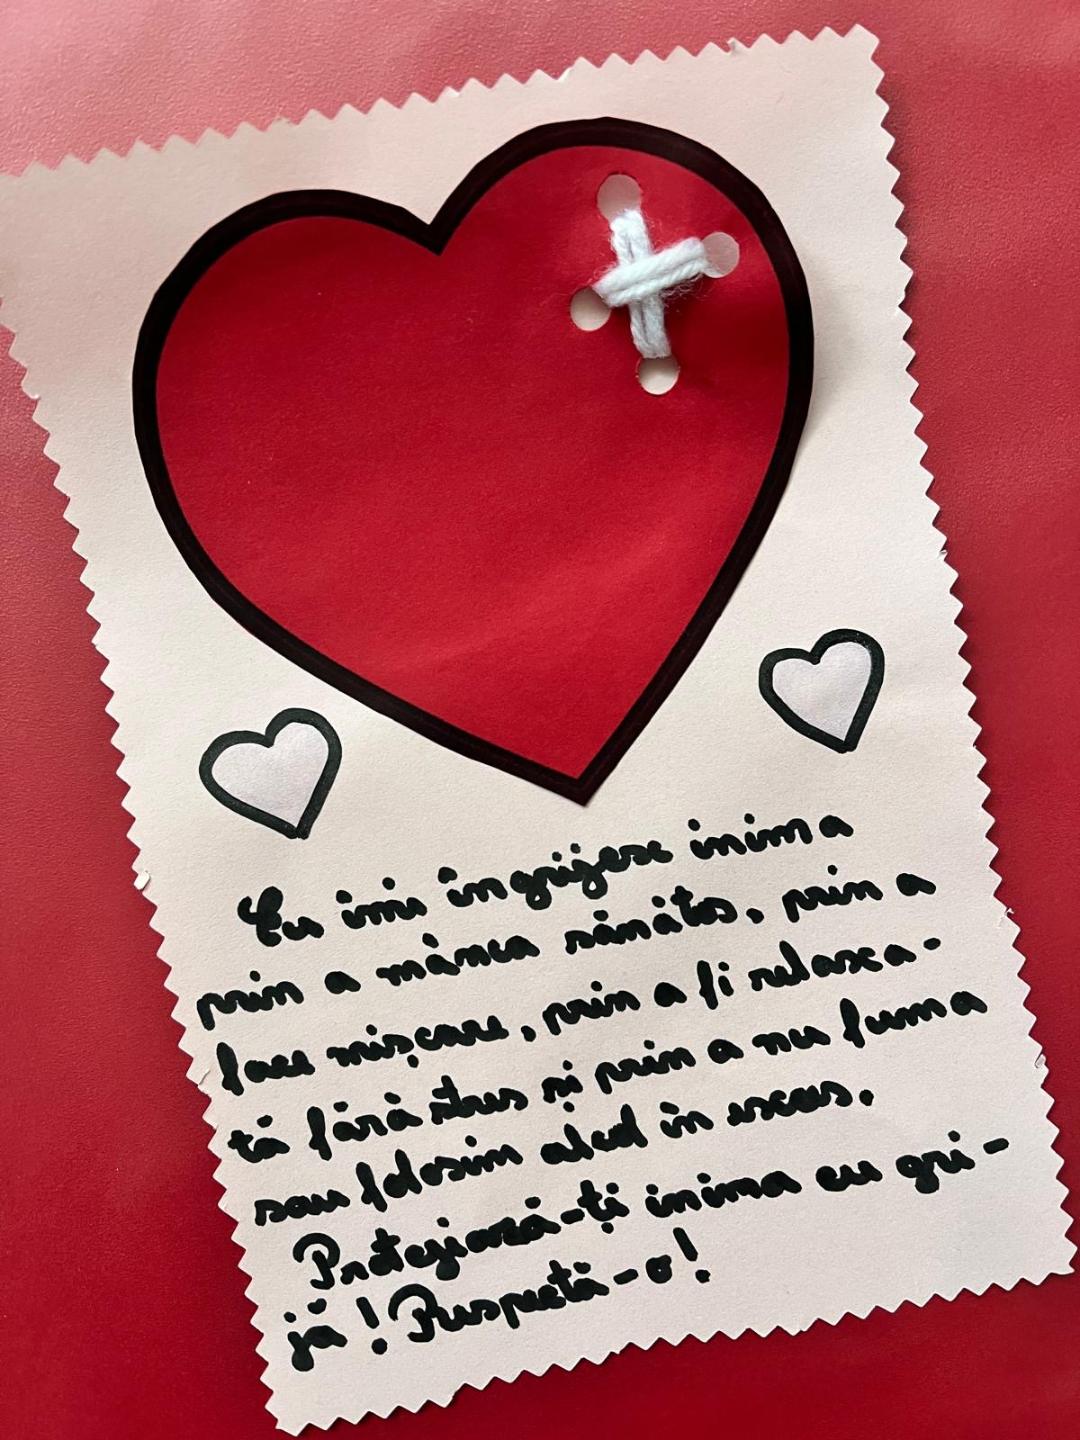 Eu îmi îngrijesc inima
prin a mânca sănătos, prin a
face mișcare, prin a fi relaxa-
tă fără stres și prin a nu fuma
sau folosim alcol în exces.
Protejiază-ți inima cu gri-
jă! Respectă-o!